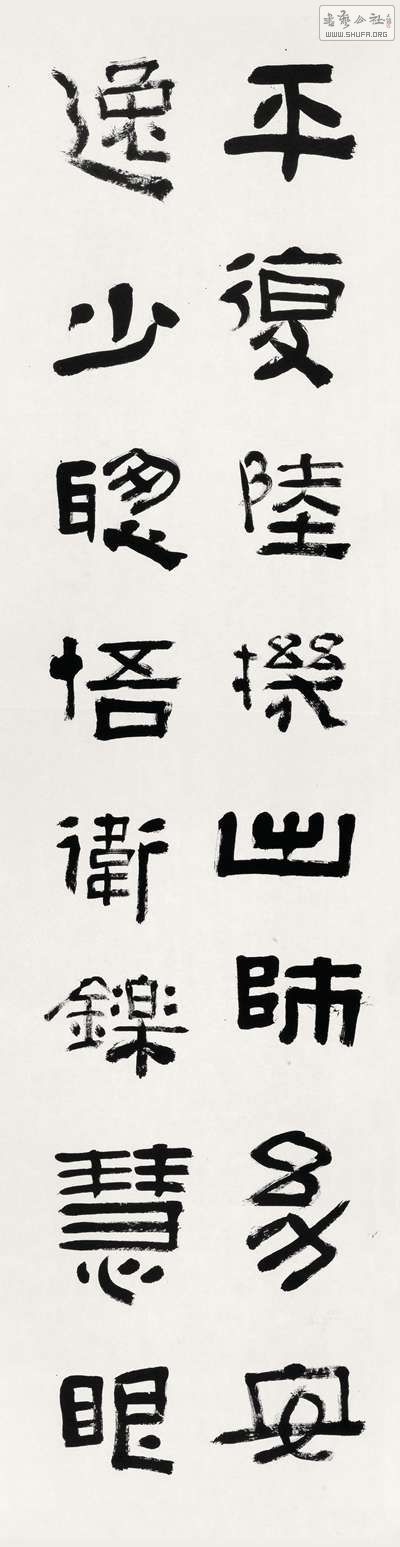 平復陸機出師幼安
逸少聰悟衛鑠慧眼
書藝公社
WWW.SHUFA.ORG